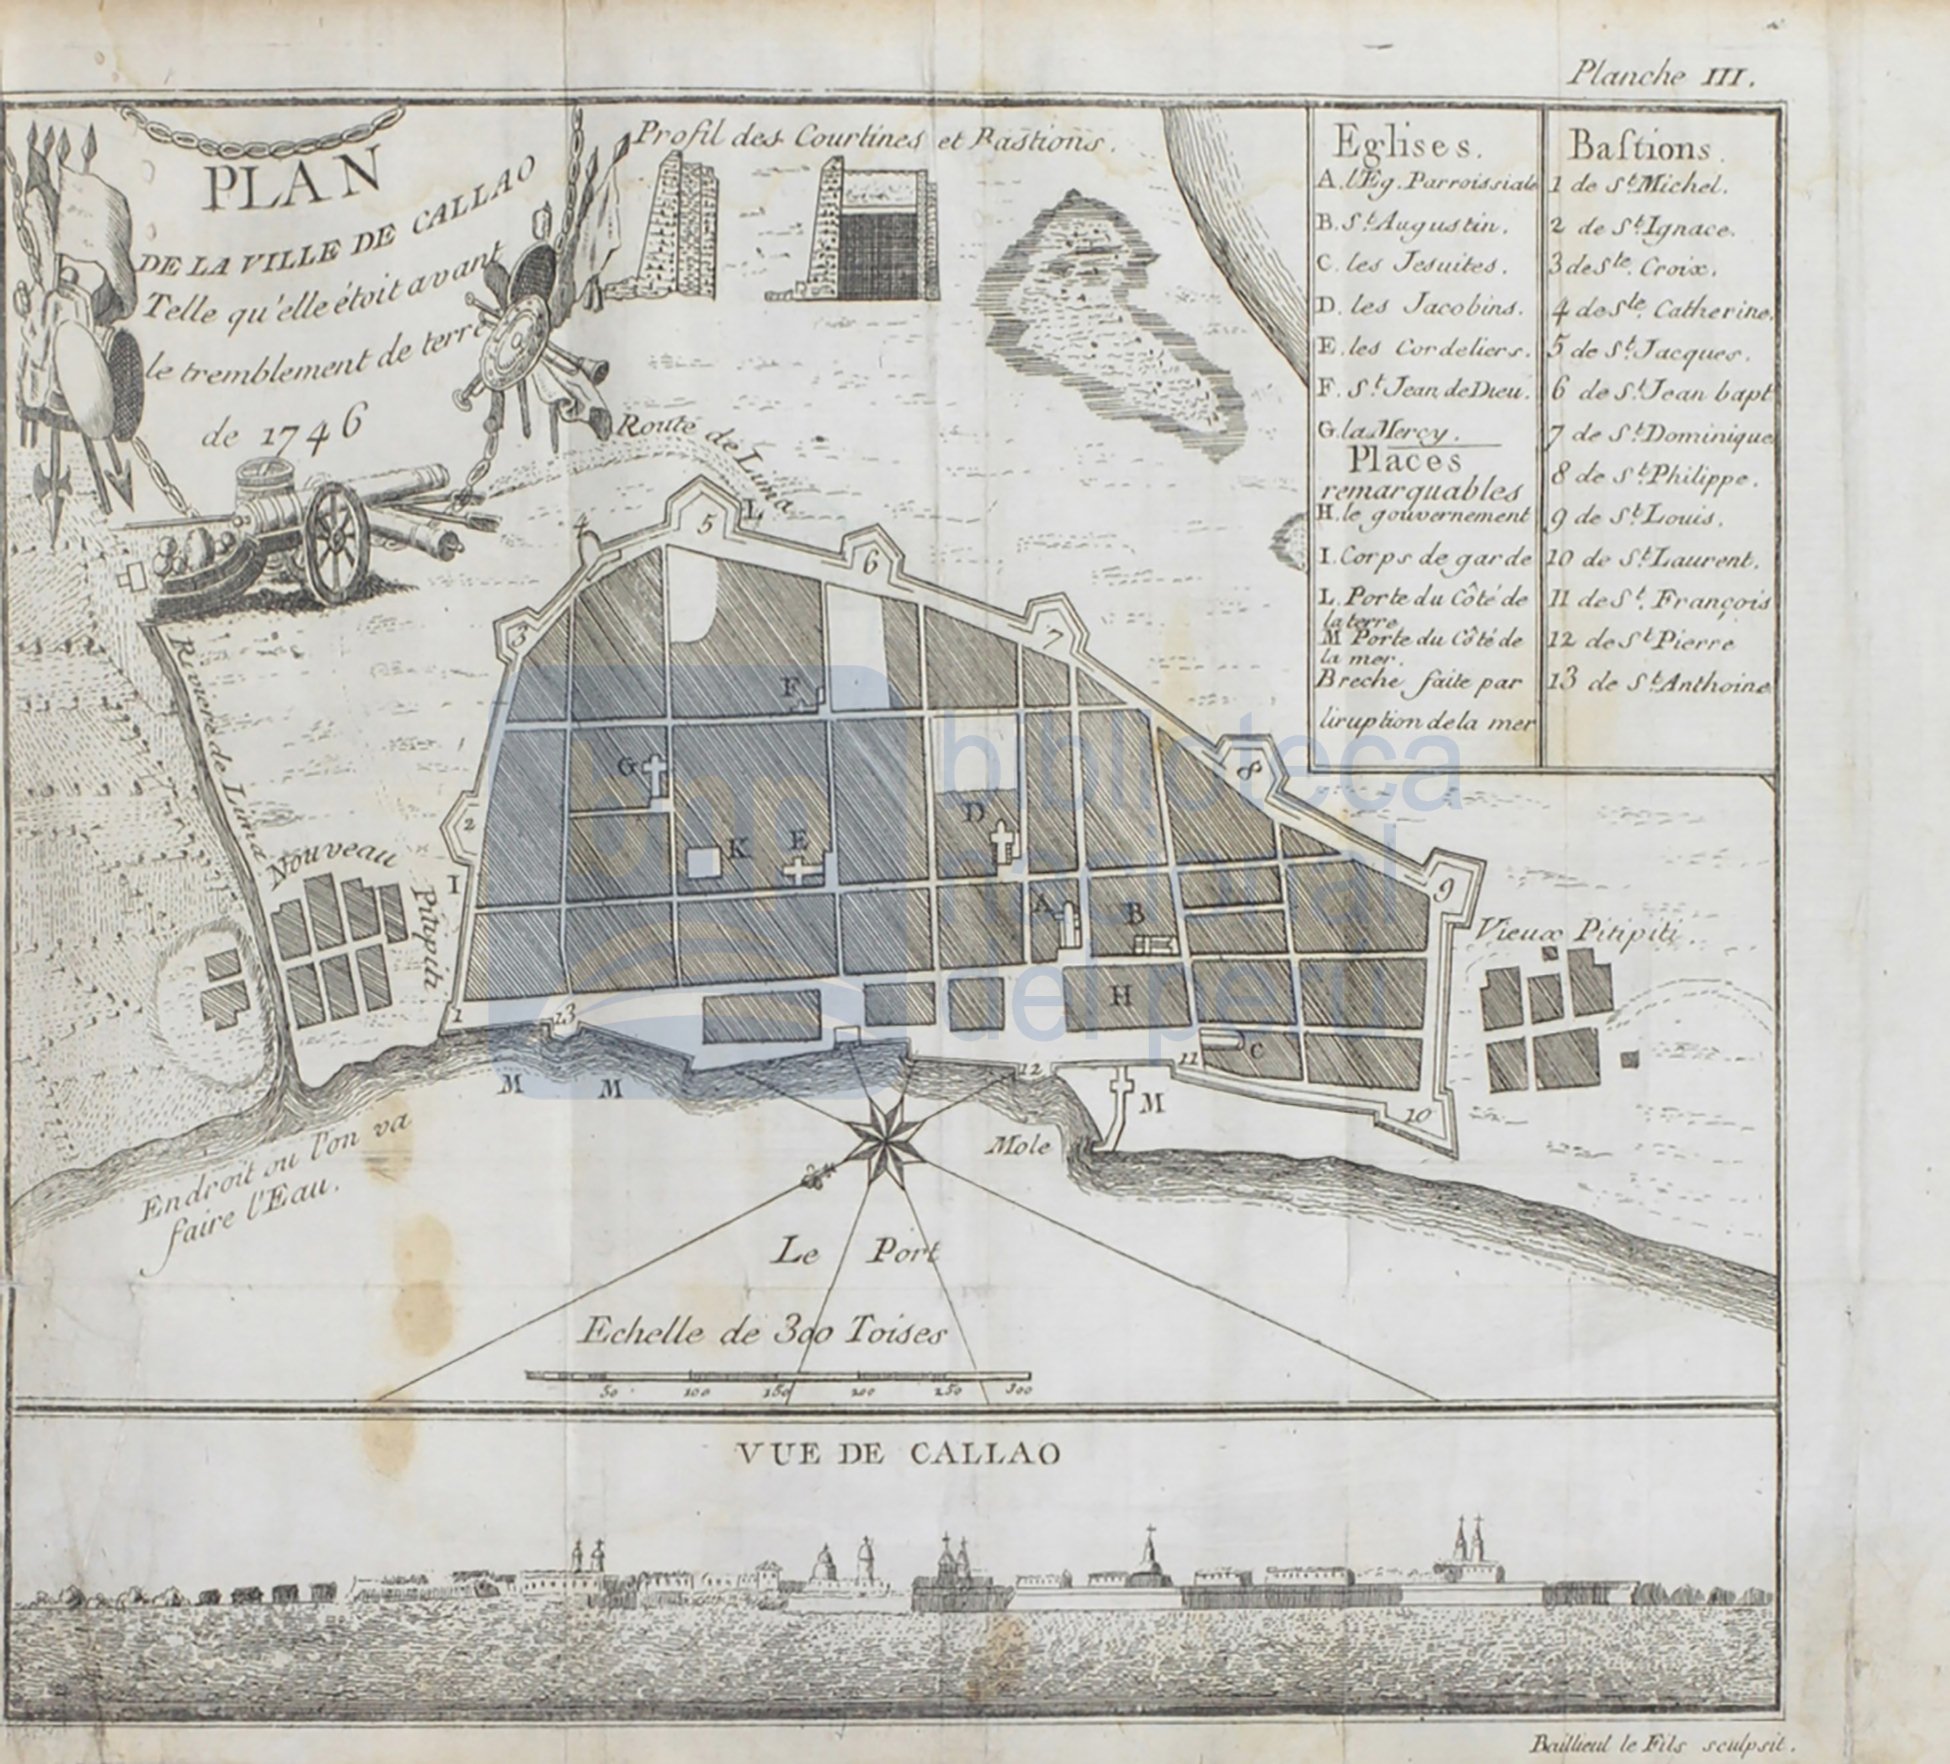 Planche III.
PLAN
DE LA VILLE DE CALLAO
Telle qu'elle étoit avant
le tremblement de terre
de 1746
Profil des Courtines et Bastions.
Eglises.
A. l'Eg. Parroissiale
B. St. Augustin.
C. les Jesuites.
D. les Jacobins.
E. les Cordeliers.
F. St. Jean de Dieu.
G. la Mercy.
Places
remarquables
H. le gouvernement
I. Corps de garde
L. Porte du Côté de
la terre
M Porte du Côté de
la mer.
Breche faite par
l'iruption de la mer
Bastions.
1 de St. Michel.
2 de St. Ignace.
3 de Ste. Croix.
4 de Ste. Catherine.
5 de St. Jacques.
6 de St. Jean bapt
7 de St. Dominique
8 de St. Philippe.
9 de St. Louis.
10 de St. Laurent.
11 de St. François
12 de St. Pierre
13 de St. Anthoine
Route de Lima
Riviere de Lima
Nouveau
Pitipiti
Vieux Pitipiti.
1
2
3
4
5
6
7
8
9
10
11
12
13
L
F
G
K
E
D
A
B
H
I
C
M
M
M
Mole
Endroit ou l'on va
faire l'Eau.
Le Port
Echelle de 300 Toises
50 100 150 200 250 300
VUE DE CALLAO
Baillieul le Fils sculpsit.
biblioteca
nacional
del perú